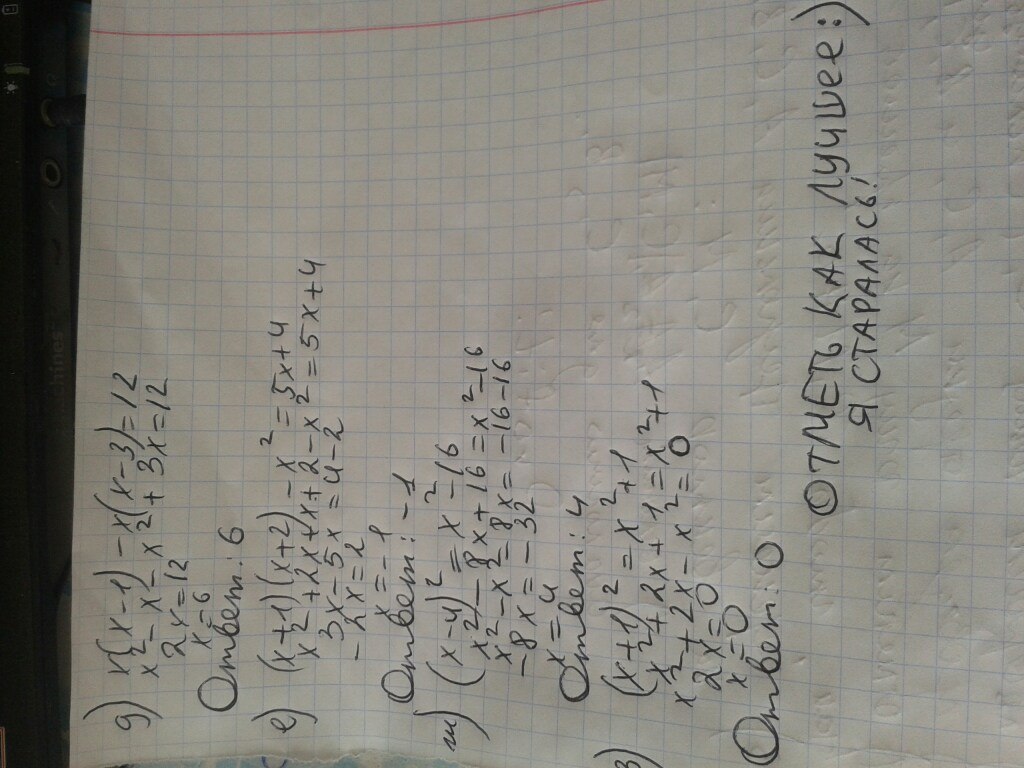 д) x(x-1) - x(x-3)=12
x²-x-x²+3x=12
2x=12
x=6
Ответ: 6
е) (x+1)(x+2)-x²=5x+4
x²+2x+x+2-x²=5x+4
3x-5x=4-2
-2x=2
x=-1
Ответ: -1
ж) (x-4)²=x²-16
x²-8x+16=x²-16
x²-x²=8x=-16-16
-8x=-32
x=4
Ответ: 4
з) (x+1)²=x²+1
x²+2x+1=x²+1
x²+2x-x²=0
2x=0
x=0
Ответ: 0
ОТМЕТЬ КАК ЛУЧШЕЕ:)
Я СТАРАЛАСЬ!